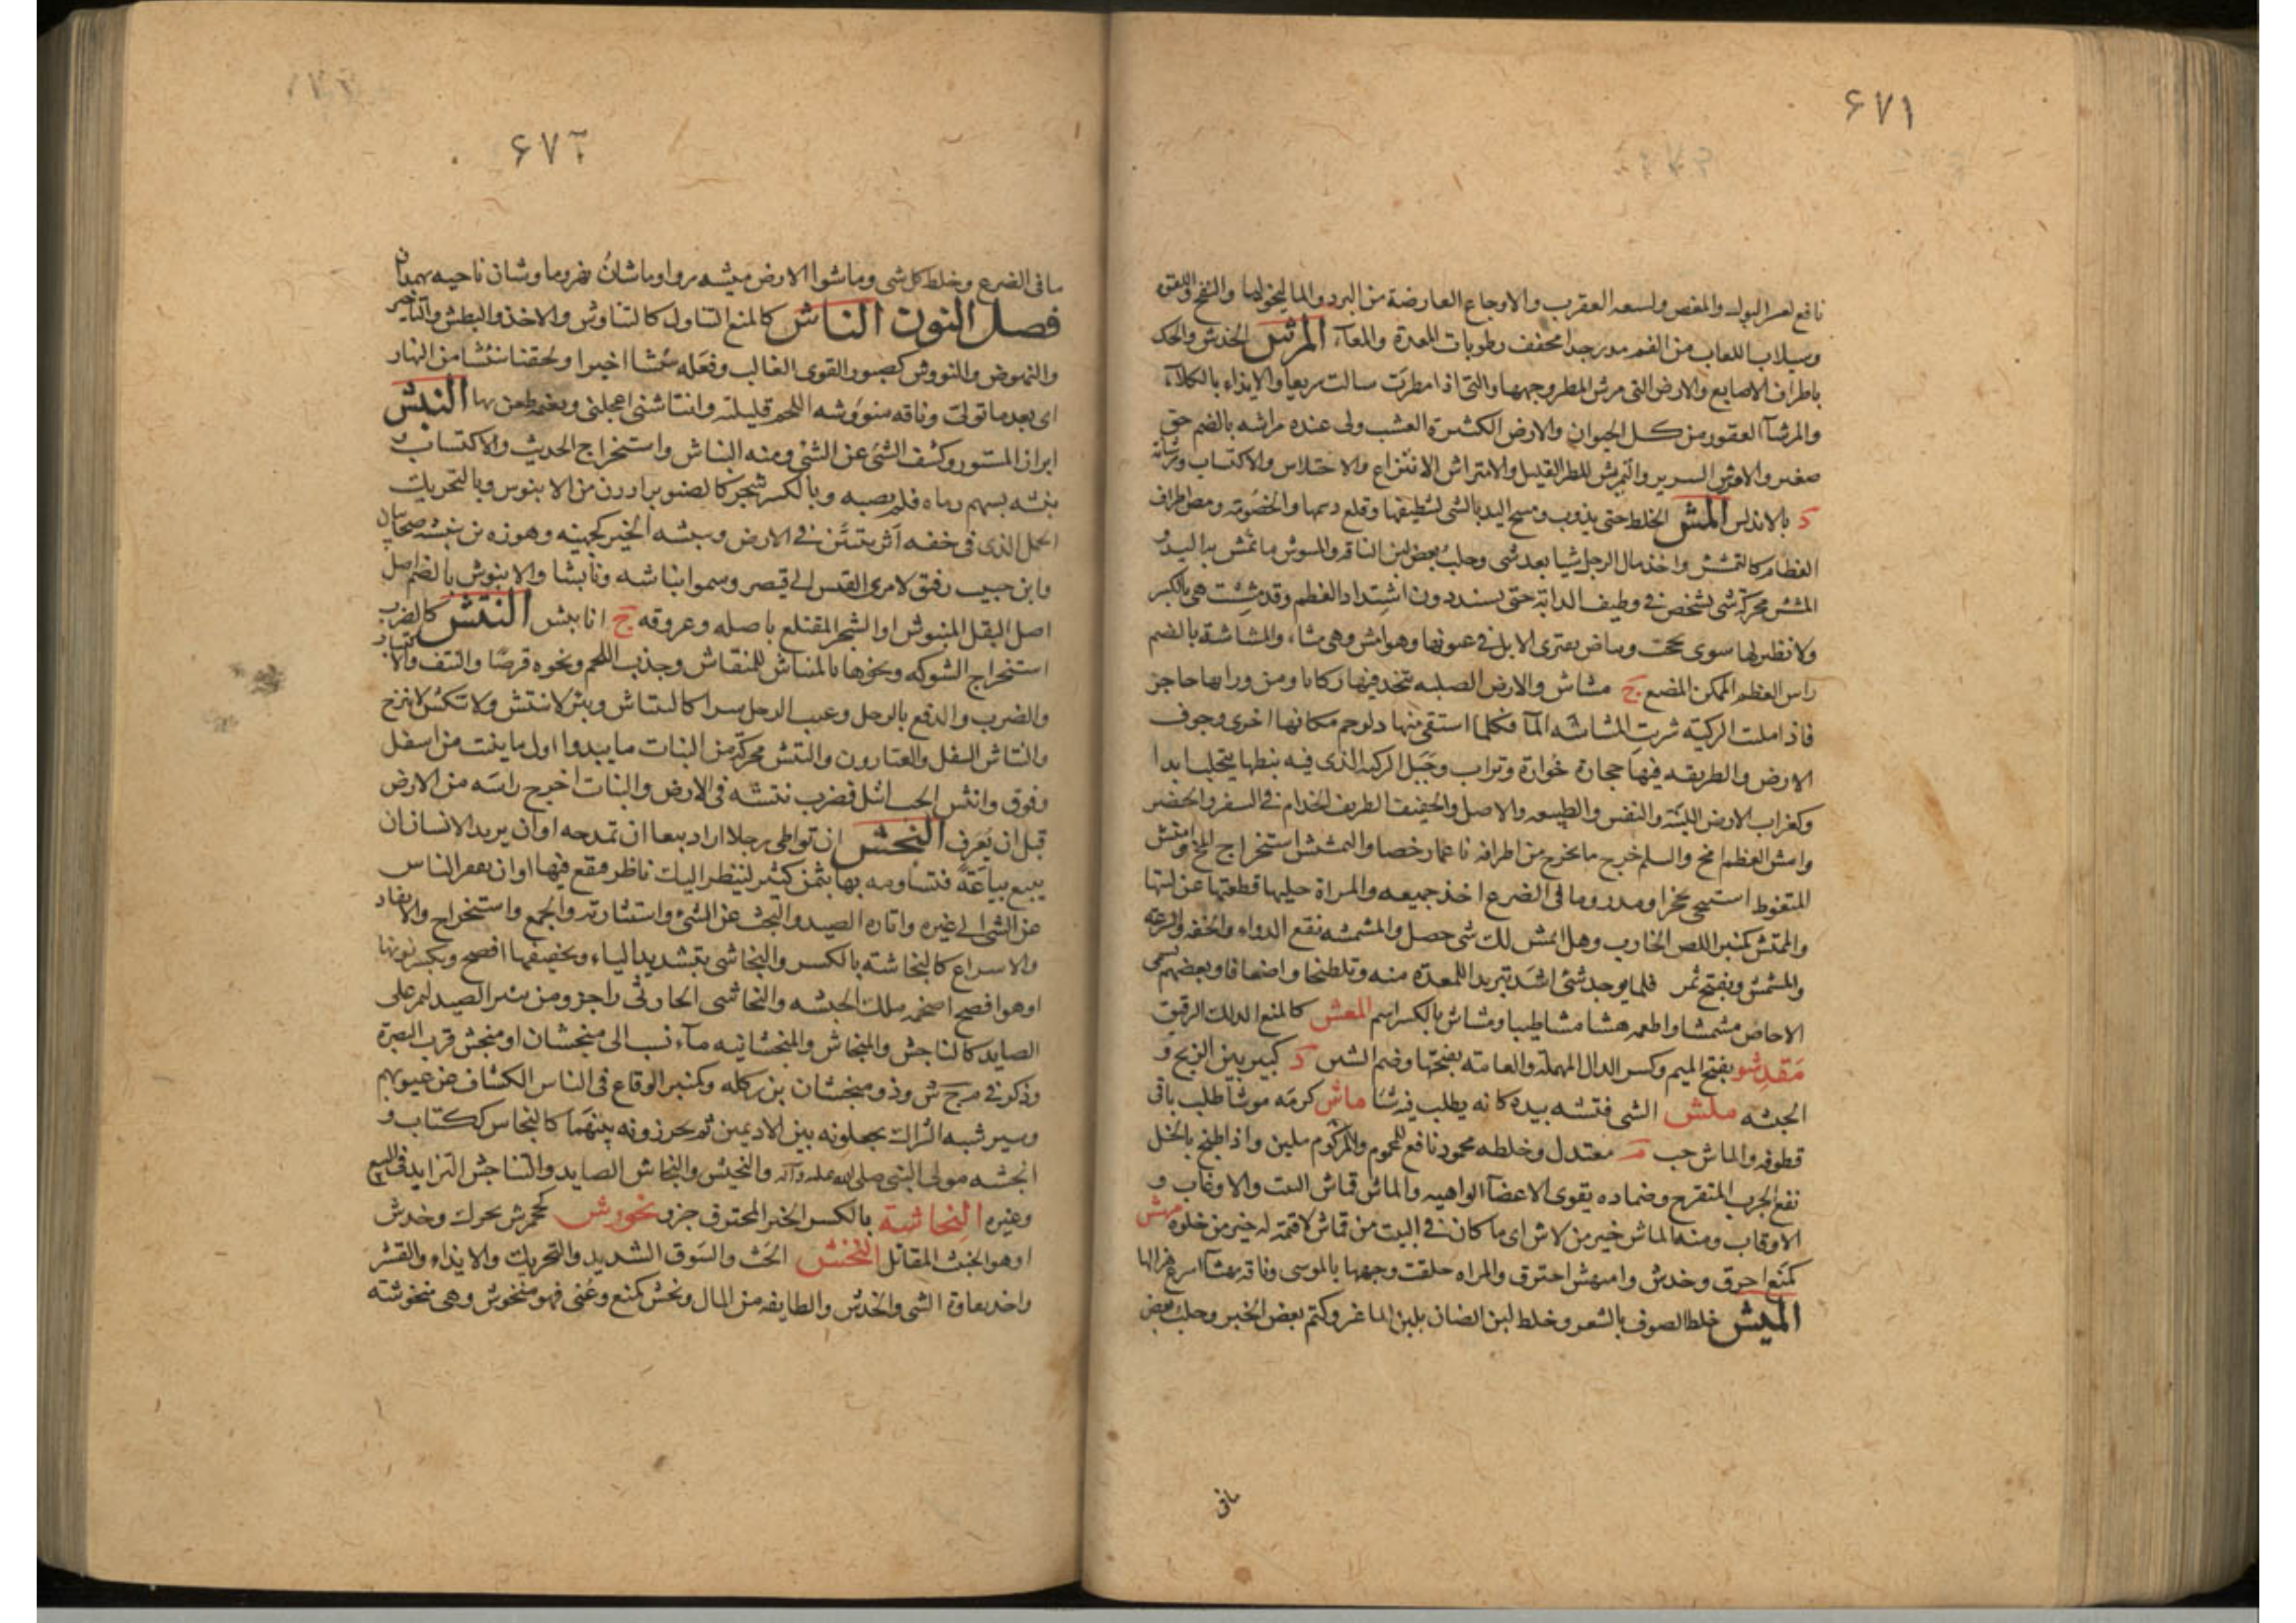 ۶۷۱
نافع لعسر البول والمغص ولسعه العقرب والاوجاع العارضة من البرد والماليخوليا والنفخ واللقوة
وسيلان اللعاب من الفم مدر جدا مجفف رطوبات المعدة والمعاء المرش الخدش والحك
باطراف الاصابع والارض التى مرش المطر وجهها والتى اذا مطرت سالت سريعا والايذاء بالكلام
والمرشآ العقور من كل الحيوان والارض الكثيرة العشب ولى عنده مراشه بالضم حق
صغير والامرش الشرير والتمريش المطر القليل والامتراش الانتزاع والاختلاس والاكتساب ومرشانه
د بالاندلس المش الخلط حتى يذوب ومسح اليد بالشى لتنظيفها وقلع دسمها والخصومة ومص اطراف
العظام كالتمشش واخذ مال الرجل شيا بعد شى وحلب بعض لبن الناقه والمشوش ما تمش به اليد و
المشش محركة شى يشخص فى وظيف الدابة حتى يشتد دون اشتداد العظم وقد مششت هى بالكسر
ولا نظير لها سوى لححت وبياض يعترى الابل فى عيونها وهو امش وهى مشاء والمشاشة بالضم
راس العظم الممكن المضغ ج مشاش والارض الصلبه تتخذ فيها ركايا ومن ورايها حاجز
فاذا ملت الركية شربت المشاشه المآ فكلما استقى منها دلو جم مكانها اخرى وجوف
الارض والطريقه فيها حجارة خوارة وتراب وجبل الركية الذى فيه نبطها يتحلب ابدا
وكغراب الارض اللينة والنفس والطبيعه والاصل والخفيف الظريف الخدام فى السفر والحضر
وامش العظم امخ والسلم خرج ما يخرج من اطرافه ناعما رخصا والتمشش استخراج المخ وامتش
المتغوط استنجى بحجر او مدر وما فى الضرع اخذ جميعه والمراة حليها قطعتها عن لبتها
والممتش كمنبر اللص الخارب وهل انمش لك شى حصل والمشمشه نقع الدواء والخفه والسرعه
والمشمش ويفتح ثمر قلما يوجد شئ اشد تبريدا للمعدة منه وتلطخا واضعافا وبعضهم يسمى
الاجاص مشمشا واطعمه هشا مشا طيبا ومشاش بالكسر اسم المعش كالمنع الدلك الرقيق
مقدشو بفتح الميم وكسر الدال المهملة والعامة بفتحها وضم الشين د كبير بين الزنج و
الحبشه ملش الشى فتشه بيده كانه يطلب فيه شا ماش كرمه موشا طلب باقى
قطوفه والماش حب معتدل وخلطه محمود نافع للمحموم والمزكوم ملين واذا طبخ بالخل
نفع الجرب المتقرح وضماده يقوى الاعضآ الواهيه والماش قماش البيت والاوغاب و
الاوقاب ومنه الماش خير من لاش اى ما كان فى البيت من قماش لا قيمة له خير من خلوه مهش
كمنع احرق وخدش وامتهش احترق والمراه حلقت وجهها بالموسى وناقه مهشآ اسرع هزالها
الميش خلط الصوف بالشعر وخلط لبن الضان بلبن الماعز وكتم بعض الخبر وحلب بعض
مافى
۶۷۲
ما فى الضرع وخلط كل شى وماشوا الارض ميشه مروا وماشان نهر وماوشان ناحيه بهمدان
فصل النون الناش كالمنع التناول كالتناوش والاخذ والبطش والتاخير
والنهوض والنووش كصبور القوى الغالب وفعله نئشا اخيرا ولحقنا نئشا من النهار
اى بعد ما تولى وناقه منووشه اللحم قليلته وانتاشنى اعجلنى وبغير طعن بها النبش
ابراز المستور وكشف الشئ عن الشئ ومنه النباش واستخراج الحديث والاكتساب
نبشه بسهم رماه فلم يصبه وبالكسر شجر كالصنوبر ارزن من الابنوس وبالتحريك
الجمل الذى فى خفه اثر يتبين فى الارض ونبيشه الخير كجهينه وهوذه بن نبيشه صحابيان
وابن حبيب رفيق لامرئ القيس الى قيصر وسموا نباشه ونابشا والانبوش بالضم اصل
اصل البقل المنبوش او الشجر المقتلع باصله وعروقه ج انابيش النتش كالضرب
استخراج الشوكه ونحوها بالمنتاش للمنقاش وجذب اللحم ونحوه قرصا والنتف والاكتساب
والضرب والدفع بالرجل وعيب الرجل سرا كالتنتاش وبئر لا تنتش ولا تنكش لا تنزح
والنتاش السفل والعيارون والنتش محركة من النبات ما يبدو اول ما ينبت من اسفل
وفوق وانتش الحب ابتل فضرب نتشه فى الارض والنبات اخرج راسه من الارض
قبل ان يعرف النجش ان تواطى رجلا اراد بيعا ان تمدحه او ان يريد الانسان ان
يبيع بياعة فتساومه بها بثمن كثير لينظر اليك ناظر فيقع فيها او ان ينفر الناس
عن الشى الى غيره واثارة الصيد والبحث عن الشئ واستثارته والجمع واستخراج والانقاد
والاسراع كالنجاشة بالكسر والنجاشى بتشديد الياء وتخفيفها افصح وبكسر نونها
او هو افصح اصحمه ملك الحبشه والنجاشى الحارثى راجز ومن يثير الصيد ليمر على
الصايد كالناجش والمنجاش والمنجشانيه مآء نسب الى منجشان او منجش قرب البصرة
وذكر فى م ر ج ش وذو منجشان بن كله وكمنبر الوقاع فى الناس الكشاف عن عيوبهم
وسير شبه الشراك يجعلونه بين الاديمين ثم يحرزونه بينهما كالنجاس ككتاب و
انجشه مولى النبى صلى الله عليه وآله والنجيش والنجاش الصايد والتناجش التزايد فى البيع
وغيره النحاشة بالكسر الخبز المحترق جرو نخورش كجحمرش تحرك وخدش
او هو الخبيث المقاتل النخش الحث والسوق الشديد والتحريك والايذاء والقشر
واخذ نقاوة الشى والخدش والطايفه من المال ونخش كمنع وعنى فهو منخوش وهى منخوشه